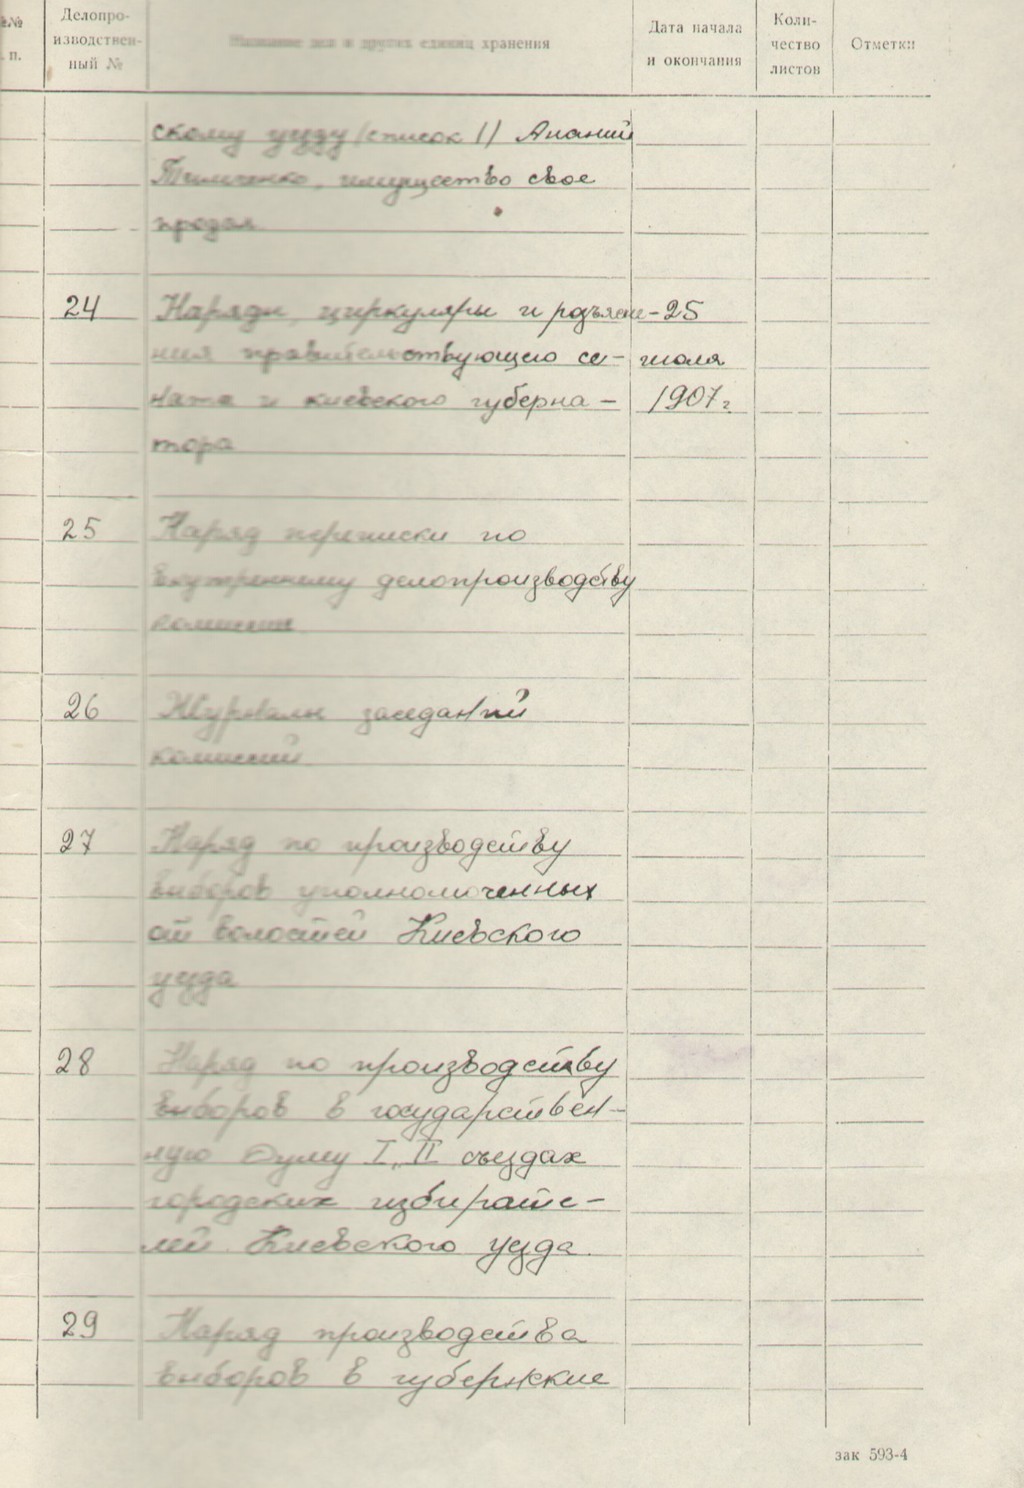 №№
п.
Делопро-
изводствен-
ный №
Название дел и других единиц хранения
Дата начала
и окончания
Коли-
чество
листов
Отметки
скому уезду /список 1/ Ананий
Тимченко, имущество свое
продал
24 Наряды, циркуляры и разъясне- 25
ния правительствующего се- июля
ната и киевского губерна- 1907 г
тора
25 Наряд переписки по
внутреннему делопроизводству
комиссии
26 Журналы заседаний
комиссий
27 Наряд по производству
выборов уполномоченных
от волостей Киевского
уезда
28 Наряд по производству
выборов в государствен-
ную Думу I, II съездах
городских избирате-
лей Киевского уезда.
29 Наряд производства
выборов в губернские
зак 593-4